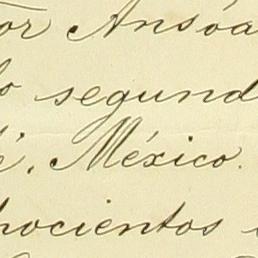 or Ansoa
o segund
é, México.
hocientos